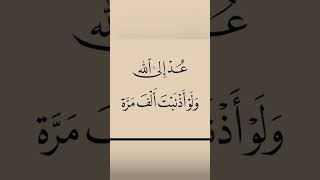 عُدْ إِلىٰ ٱللَّه
وَلَوْ أَذْنَبْتَ أَلْفَ مَرَّة